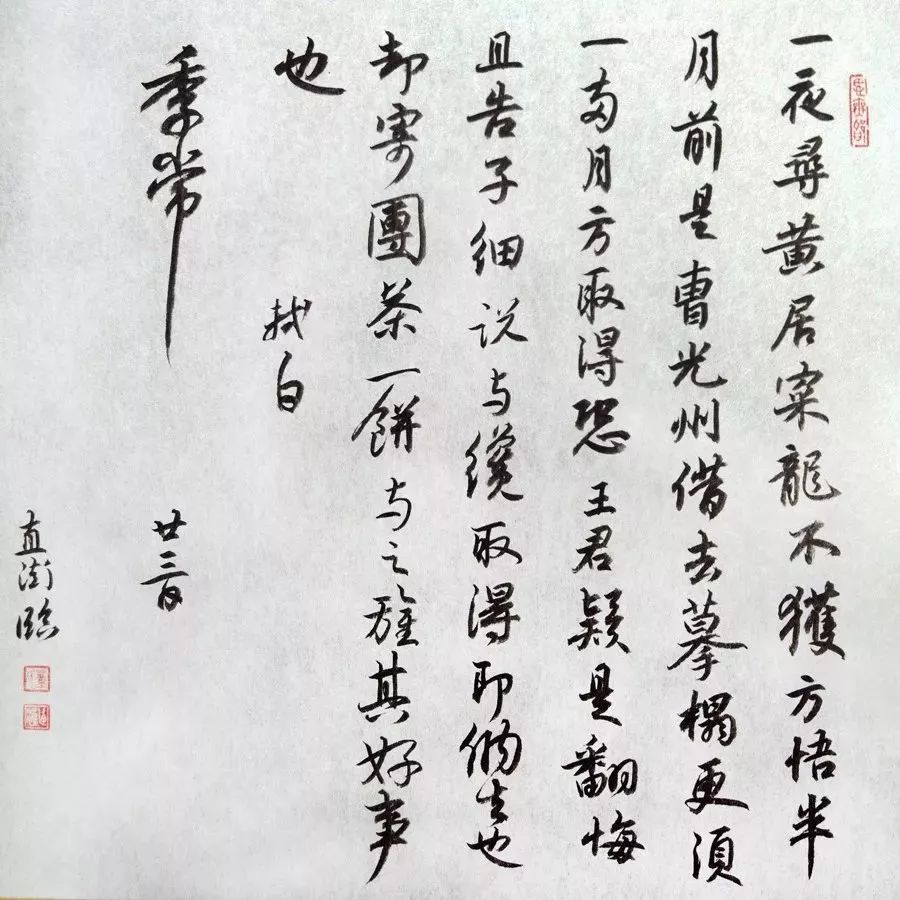 一夜尋黃居寀龍不獲方悟半
月前是曹光州借去摹榻更須
一兩月方取得恐王君疑是翻悔
且告子細說與纔取得即納去也
却寄團茶一餅与之旌其好事
也
軾白
季常
廿三日
直街臨